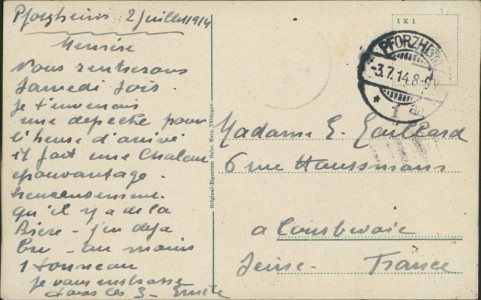 Pforzheim 2 Juillet 1914
Nous rentrerons
Samedi soir.
je t'enverrai
une depeche pour
l'heure d'arrivé
il fait une Chaleur
epouvantage.
heureusement
qu'il y a de la
Bière - j'en deja
bu - au moins
1 tonneau
je vous embrasse
tous les 3 - Emile
1 X 1
PFORZHEIM
-3.7.14.8-9V
* 1
Madame E. Gaillard
6 rue Haussmann
a Courbevoie
Seine. France